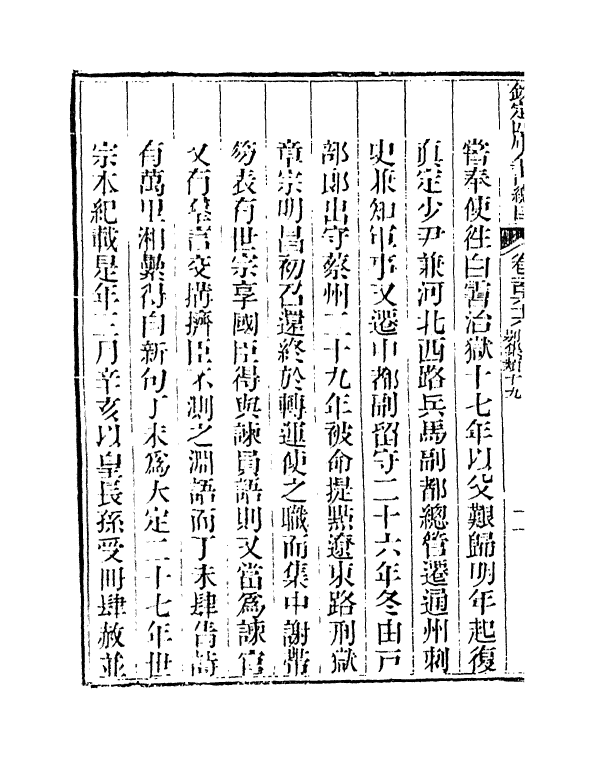 欽定四庫全書總目 卷一百六十六 別集類十九
嘗奉使往白霫治獄十七年以父艱歸明年起復
真定少尹兼河北西路兵馬副都總管遷通州刺
史兼知軍事又遷中都副留守二十六年冬由戶
部郎出守蔡州二十九年被命提點遼東路刑獄
章宗明昌初召還終於轉運使之職而集中謝帶
笏表有世宗享國臣得與諫員語則又當爲諫官
又有羣言交搆擠臣不測之淵語而丁未肆眚詩
有萬里湘纍得自新句丁未爲大定二十七年世
宗本紀載是年三月辛亥以皇長孫受冊肆赦並